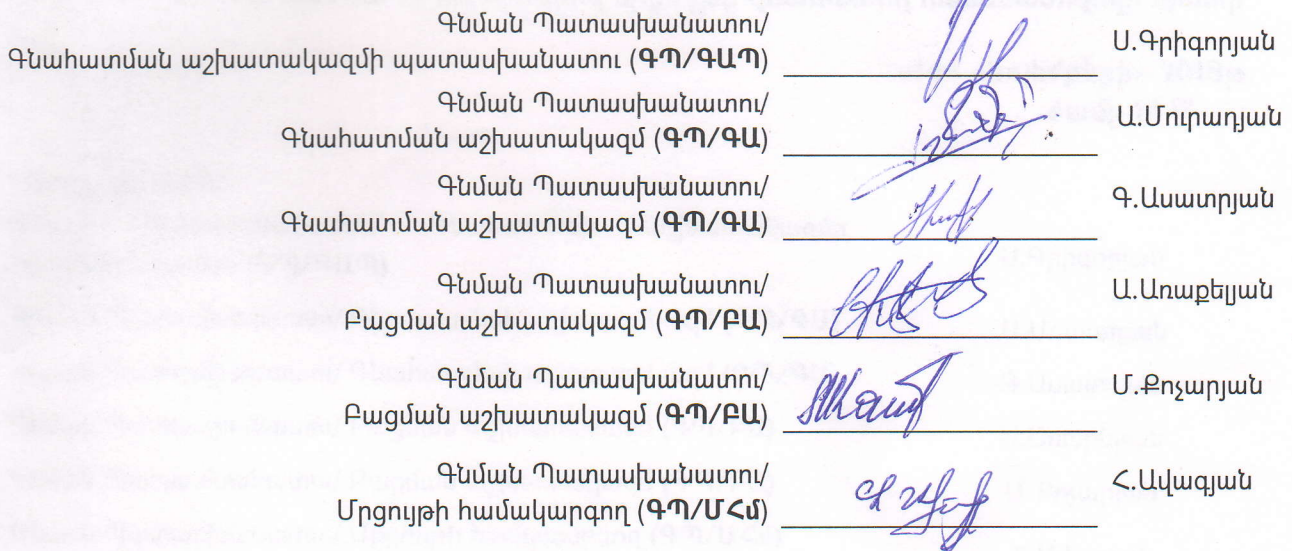 Գնման Պատասխանատու/
Գնահատման աշխատակազմի պատասխանատու (ԳՊ/ԳԱՊ)
Ս.Գրիգորյան
Գնման Պատասխանատու/
Գնահատման աշխատակազմ (ԳՊ/ԳԱ)
Ա.Մուրադյան
Գնման Պատասխանատու/
Գնահատման աշխատակազմ (ԳՊ/ԳԱ)
Գ.Ասատրյան
Գնման Պատասխանատու/
Բացման աշխատակազմ (ԳՊ/ԲԱ)
Ա.Առաքելյան
Գնման Պատասխանատու/
Բացման աշխատակազմ (ԳՊ/ԲԱ)
Մ.Քոչարյան
Գնման Պատասխանատու/
Մրցույթի համակարգող (ԳՊ/ՄՀմ)
Հ.Ավագյան